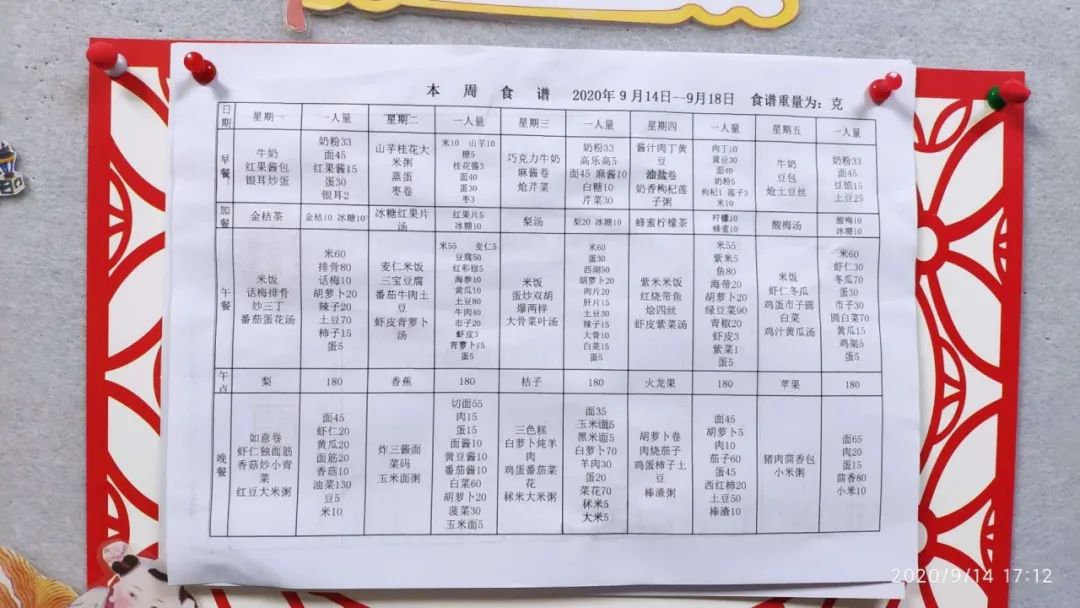 本 周 食 谱 2020年9月14日--9月18日 食谱重量为：克
日期 星期一 一人量 星期二 一人量 星期三 一人量 星期四 一人量 星期五 一人量
早餐
牛奶
红果酱包
银耳炒蛋
奶粉33
面45
红果酱15
蛋30
银耳2
山芋桂花大
米粥
蒸蛋
枣卷
米10 山芋10
糖5
桂花酱3
面40
蛋30
枣3
巧克力牛奶
麻酱卷
炝芹菜
奶粉33
高乐高5
面45 麻酱10
白糖10
芹菜30
酱汁肉丁黄
豆
油盐卷
奶香枸杞莲
子粥
肉丁10
黄豆30
面40
奶粉5
枸杞1 莲子3
米10
牛奶
豆包
炝土豆丝
奶粉33
面45
豆馅15
土豆25
加餐
金桔茶
金桔10 冰糖10
冰糖红果片
汤
红果片5
冰糖10
梨汤
梨20 冰糖10
蜂蜜柠檬茶
柠檬10
蜂蜜10
酸梅汤
酸梅10
冰糖10
午餐
米饭
话梅排骨
炒三丁
番茄蛋花汤
米60
排骨80
话梅10
胡萝卜20
辣子20
土豆70
柿子15
蛋5
麦仁米饭
三宝豆腐
番茄牛肉土
豆
虾皮青萝卜
汤
米55 麦仁5
豆腐50
红彩椒5
海参10
黄瓜10
土豆80
牛肉40
市子20
虾皮3
青萝卜15
蛋5
米饭
蛋炒双胡
爆两样
大骨菜叶汤
米60
蛋30
西湖50
胡萝卜20
肉片20
肝片15
土豆30
辣子15
大骨10
白菜15
蛋5
紫米米饭
红烧带鱼
烩四丝
虾皮紫菜汤
米55
紫米5
鱼80
海带20
胡萝卜20
绿豆菜90
青椒20
虾皮3
紫菜1
蛋5
米饭
虾仁冬瓜
鸡蛋市子圆
白菜
鸡汁黄瓜汤
米60
虾仁30
冬瓜70
蛋30
市子30
圆白菜70
黄瓜15
鸡架5
蛋5
午点 梨 180 香蕉 180 桔子 180 火龙果 180 苹果 180
晚餐
如意卷
虾仁独面筋
香菇炒小青
菜
红豆大米粥
面45
虾仁20
黄瓜20
面筋20
香菇10
油菜130
豆5
米10
炸三酱面
菜码
玉米面粥
切面55
肉15
蛋15
面酱10
黄豆酱10
番茄酱10
白菜60
胡萝卜20
菠菜30
玉米面5
三色糕
白萝卜炖羊
肉
鸡蛋番茄菜
花
秫米大米粥
面35
玉米面5
黑米面5
白萝卜70
羊肉30
蛋20
菜花70
秫米5
大米5
胡萝卜卷
肉烧茄子
鸡蛋柿子土
豆
棒渣粥
面45
胡萝卜5
肉10
茄子60
蛋45
西红柿20
土豆50
棒渣10
猪肉茴香包
小米粥
面65
肉20
蛋15
茴香80
小米10
2020/9/14 17:12